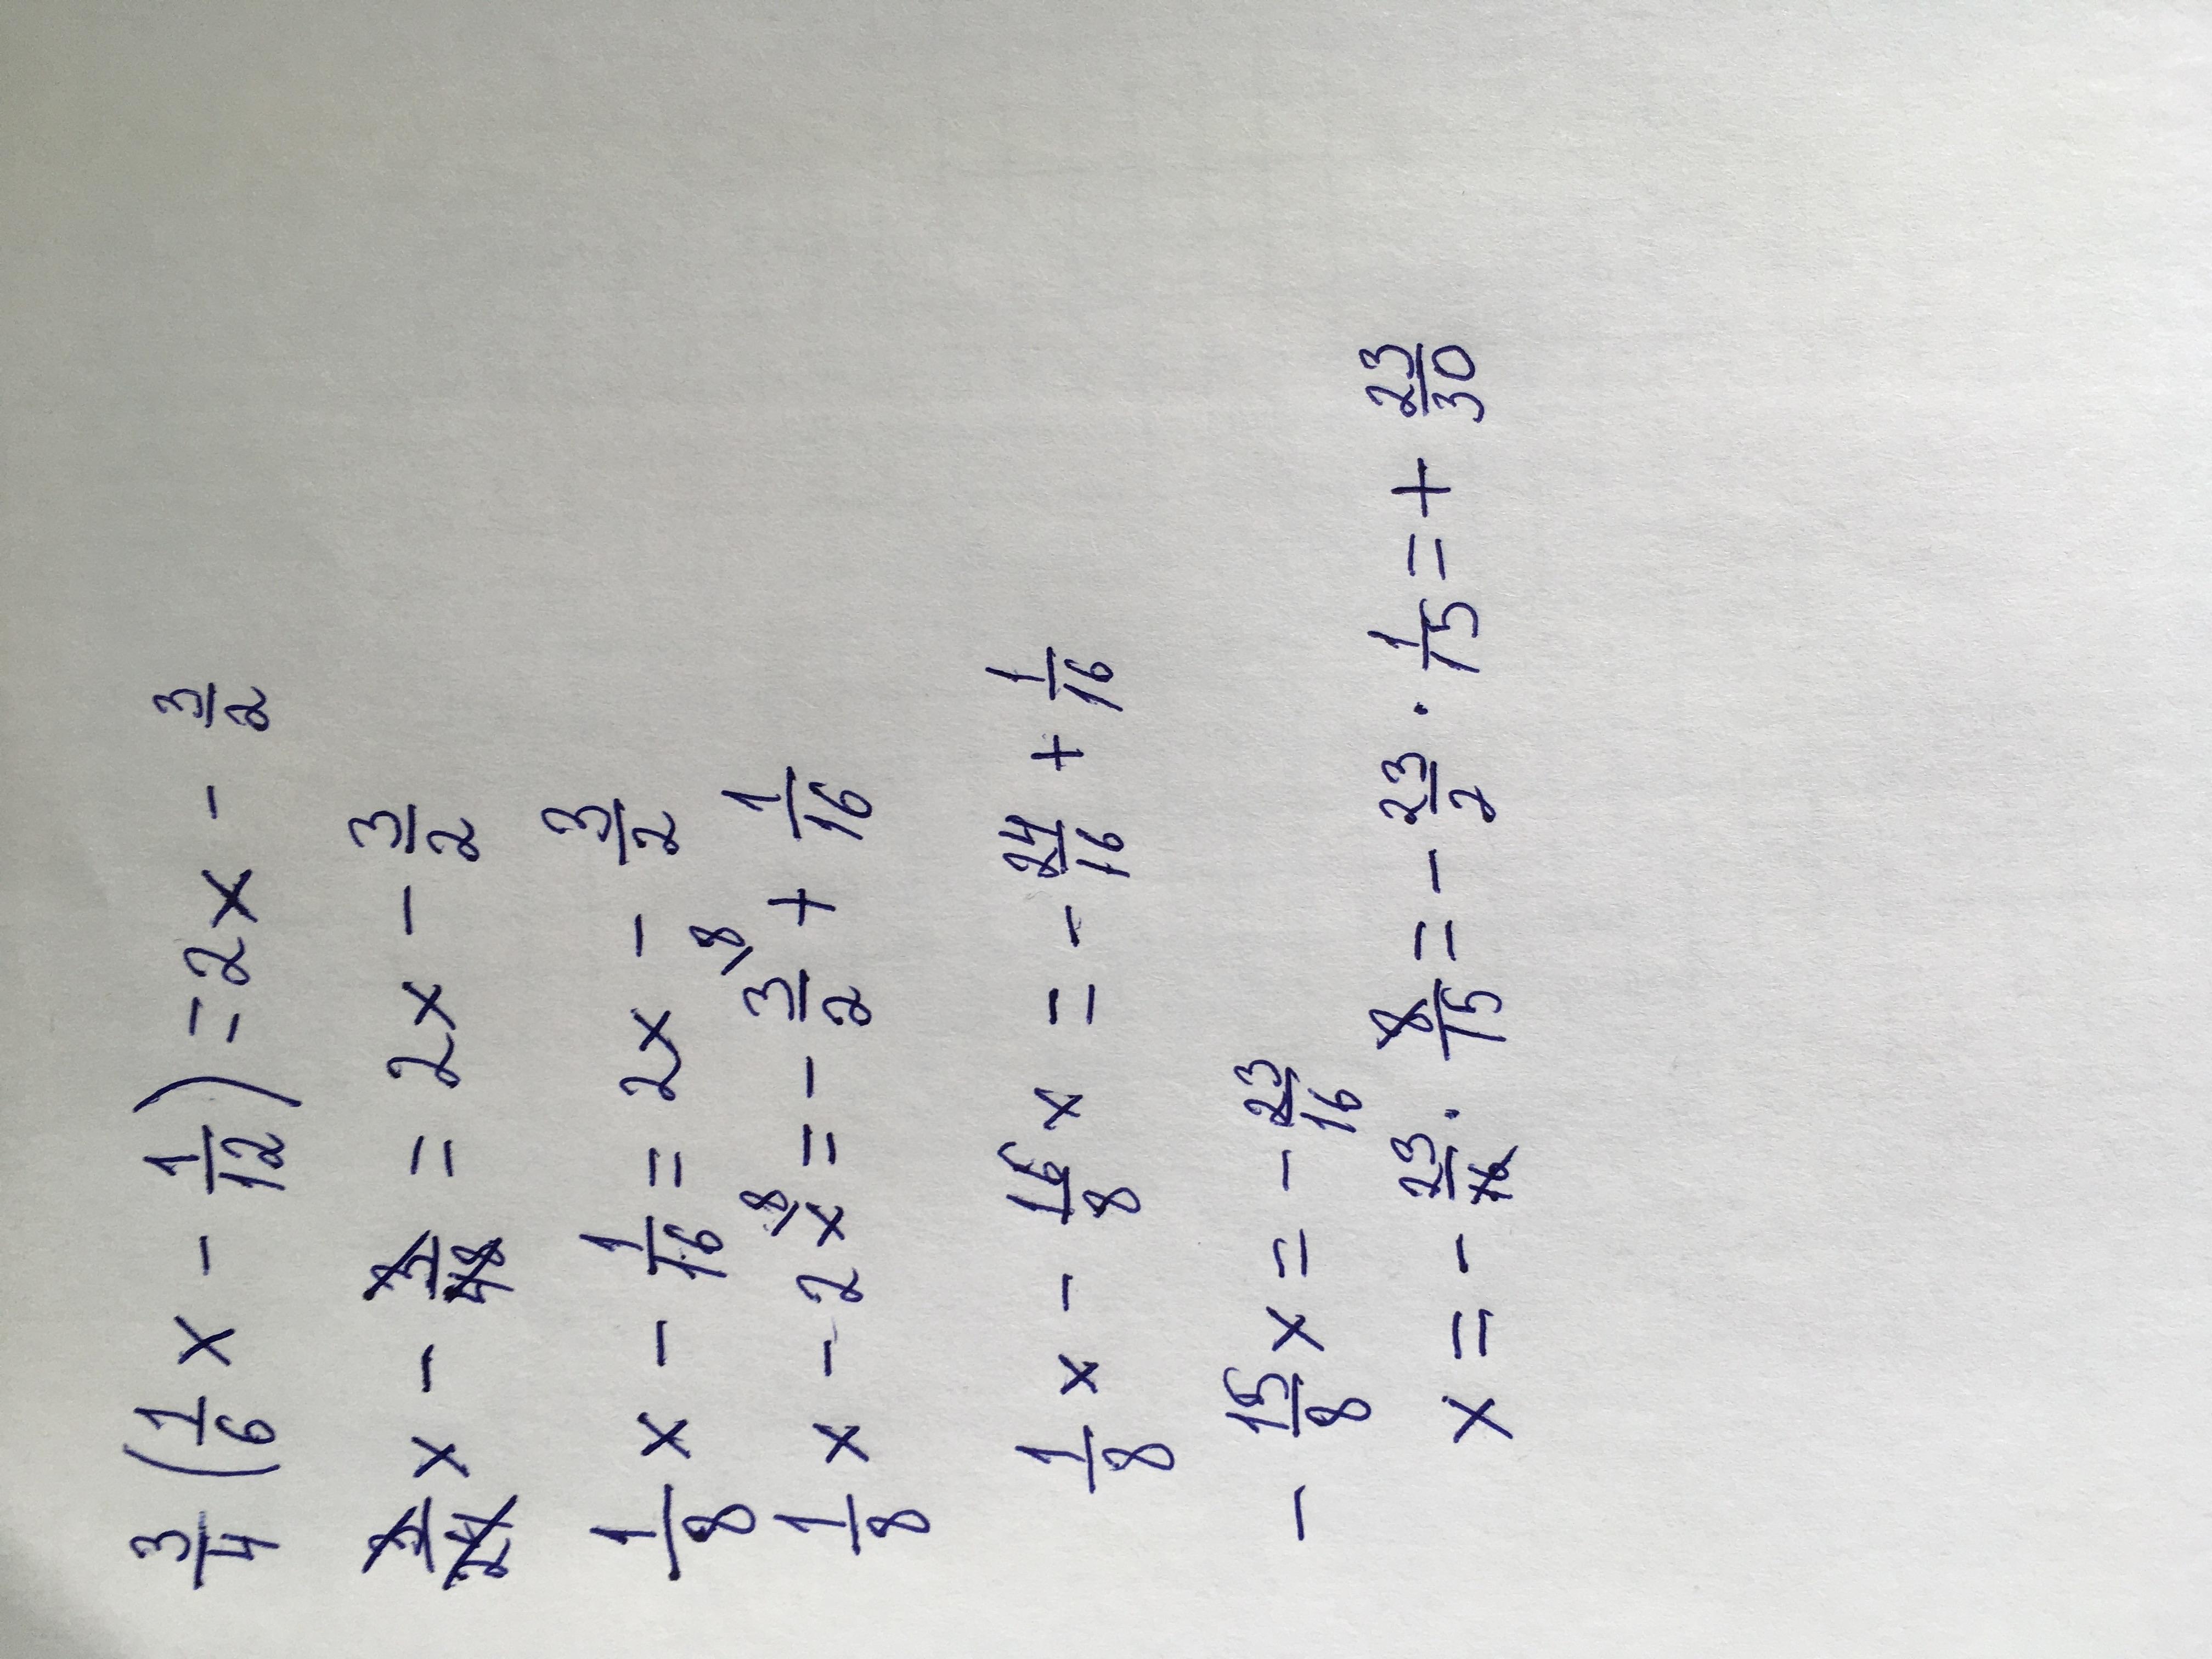 3/4 (1/6 x - 1/12) = 2x - 3/2
3/24 x - 3/48 = 2x - 3/2
1/8 x - 1/16 = 2x - 3/2
1/8 x - 2x /8 = - 3/2 /8 + 1/16
1/8 x - 16/8 x = - 24/16 + 1/16
- 15/8 x = - 23/16
x = - 23/16 · 8/15 = - 23/2 · 1/15 = + 23/30